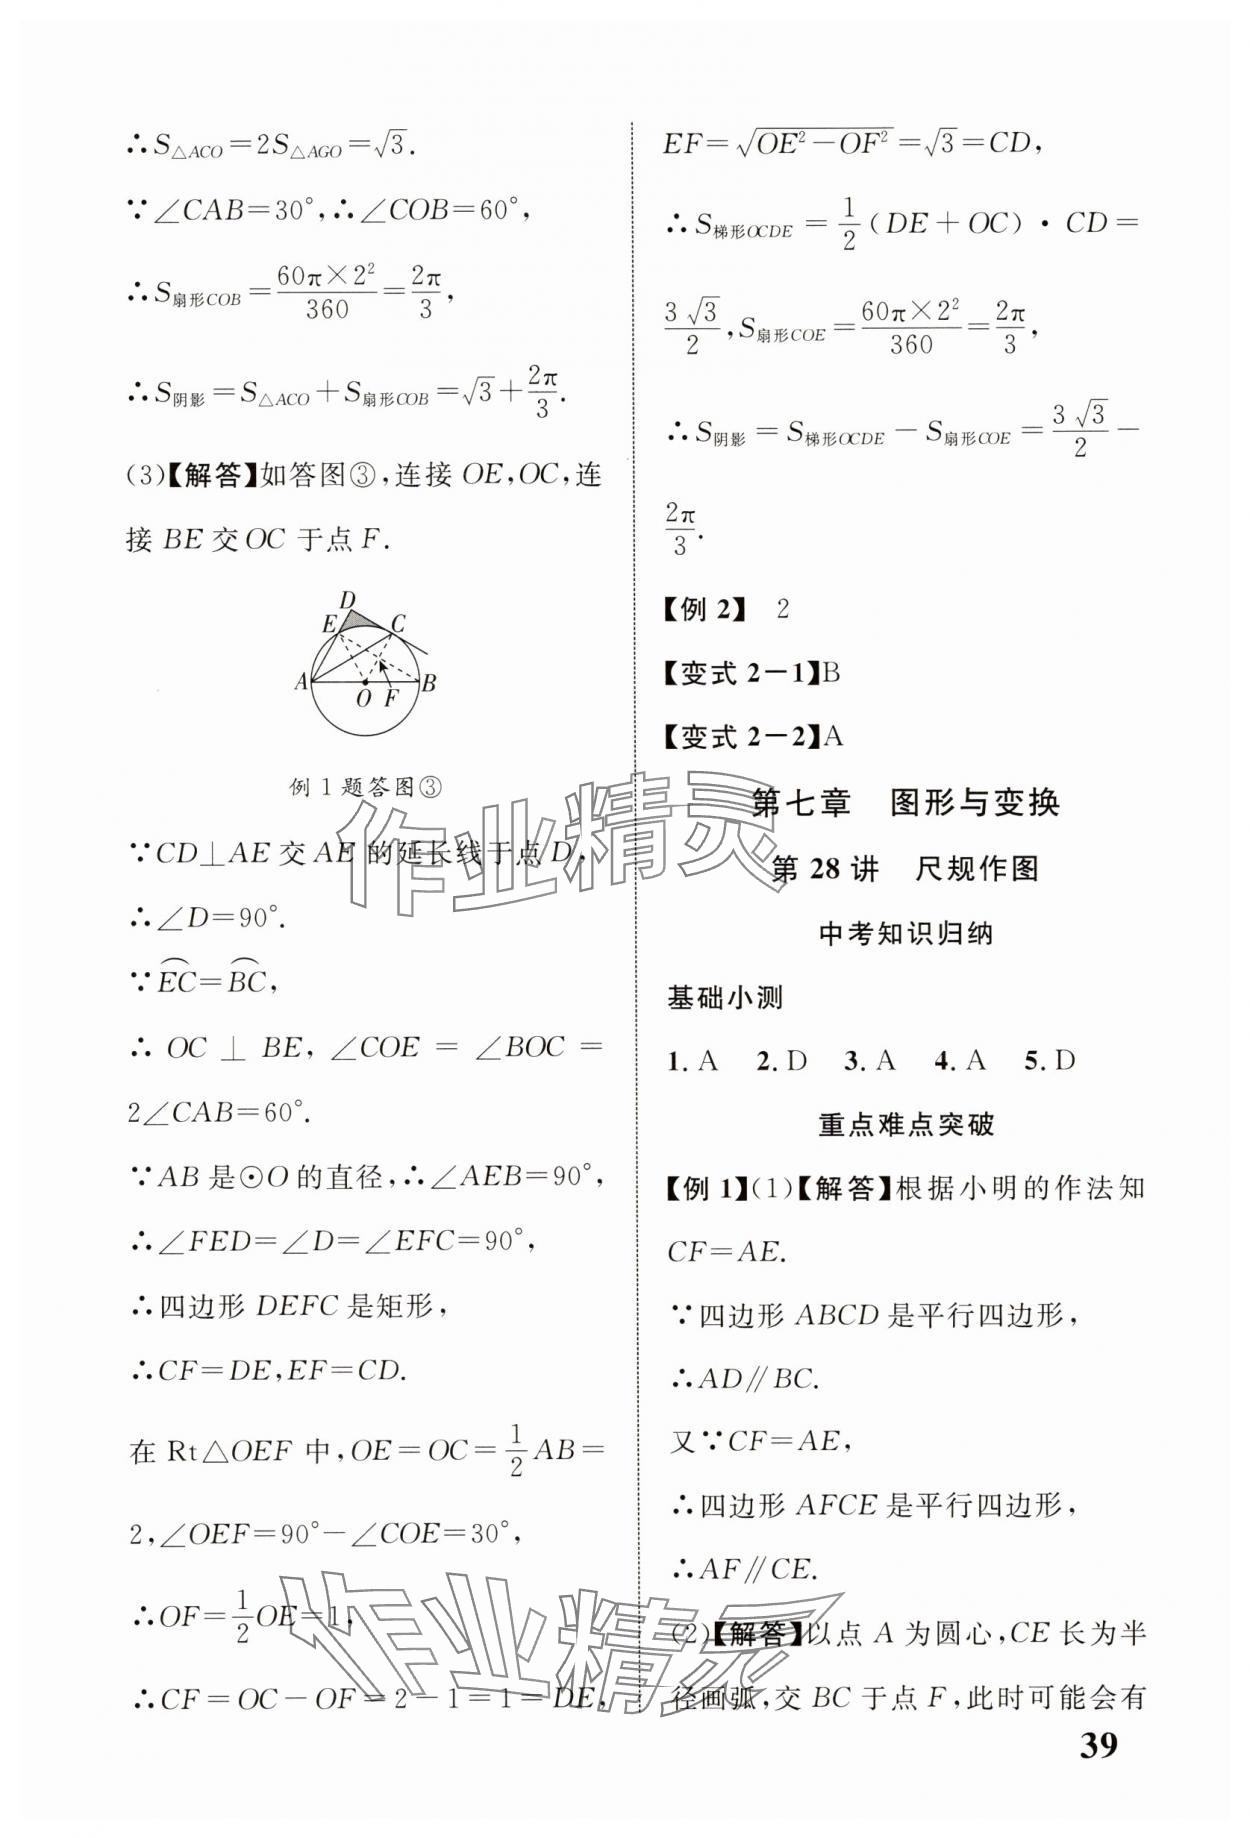 ∴S△ACO=2S△AGO=√3.
∵∠CAB=30°,∴∠COB=60°,
∴S扇形COB=60π×2²/360=2π/3,
∴S阴影=S△ACO+S扇形COB=√3+2π/3.
(3)【解答】如答图③,连接OE,OC,连
接BE交OC于点F.
D
E
C
A
O
F
B
例1题答图③
∵CD⊥AE交AE的延长线于点D,
∴∠D=90°.
∵⌒EC=⌒BC,
∴OC⊥BE,∠COE=∠BOC=
2∠CAB=60°.
∵AB是⊙O的直径,∴∠AEB=90°,
∴∠FED=∠D=∠EFC=90°,
∴四边形DEFC是矩形,
∴CF=DE,EF=CD.
在Rt△OEF中,OE=OC=1/2AB=
2,∠OEF=90°-∠COE=30°,
∴OF=1/2OE=1,
∴CF=OC-OF=2-1=1=DE,
EF=√(OE²-OF²)=√3=CD,
∴S梯形OCDE=1/2(DE+OC)·CD=
3√3/2,S扇形COE=60π×2²/360=2π/3,
∴S阴影=S梯形OCDE-S扇形COE=3√3/2-
2π/3.
【例2】 2
【变式2-1】B
【变式2-2】A
第七章 图形与变换
第28讲 尺规作图
中考知识归纳
基础小测
1.A 2.D 3.A 4.A 5.D
重点难点突破
【例1】(1)【解答】根据小明的作法知
CF=AE.
∵四边形ABCD是平行四边形,
∴AD∥BC.
又∵CF=AE,
∴四边形AFCE是平行四边形,
∴AF∥CE.
(2)【解答】以点A为圆心,CE长为半
径画弧,交BC于点F,此时可能会有
39
作业精灵
作业精灵